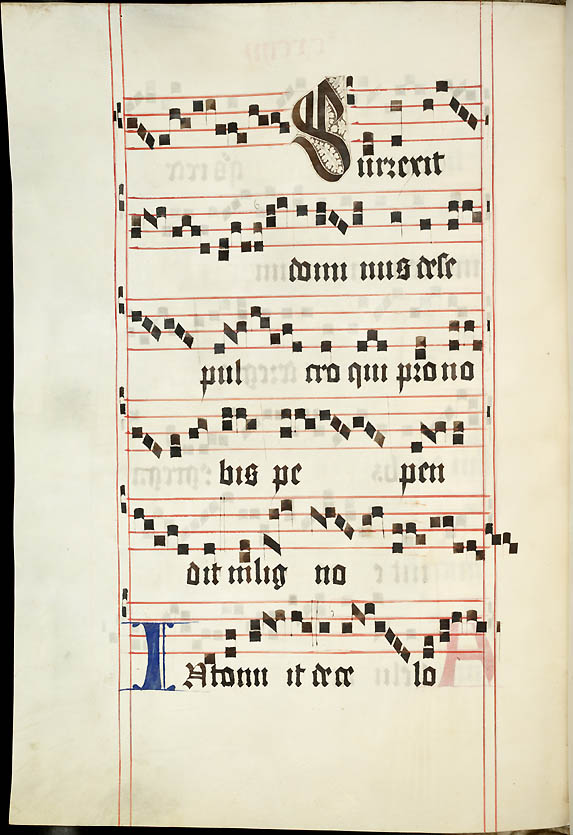 Surrexit
domi nus de se
pul cro qui pro no
bis pe pen
dit in lig no
I Atonu it de ce lo A